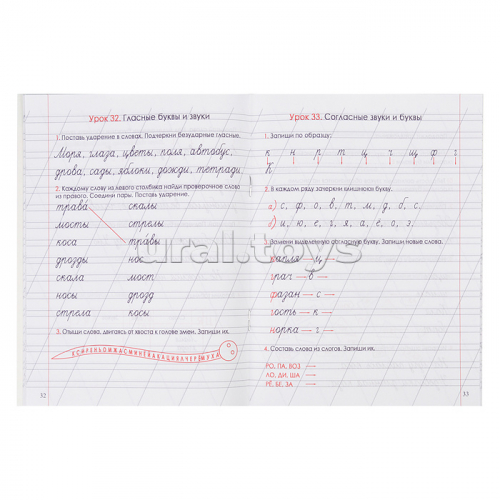 Урок 32. Гласные буквы и звуки
1. Поставь ударение в словах. Подчеркни безударные гласные.
Моря, глаза, цветы, поля, автобус,
дрова, сады, яблоки, дожди, тетради.
2. Каждому слову из левого столбика найди проверочное слово
из правого. Соедини пары. Поставь ударение.
трава скалы
мосты стрелы
коса травы
дрозды нос
скала мост
носы дрозд
стрела косы
3. Отыщи слова, двигаясь от хвоста к голове змеи. Запиши их.
52
Урок 33. Согласные звуки и буквы
1. Запиши по образцу:
к н р т щ ч ш ф г
К
2. В каждом ряду зачеркни лишнюю букву.
а) с, ф, о, в, т, м, д, б, с.
б) и, ю, е, г, я, а, ё, о, э.
3. Замени выделенную согласную букву. Запиши новые слова.
капля ц
грач – в –
фазан – с –
гость – к –
норка – г –
4. Составь слова из слогов. Запиши их.
РО, ПА, ВОЗ
ЛО, ДИ, ША
РЁ, БЕ, ЗА
53
ural.toys